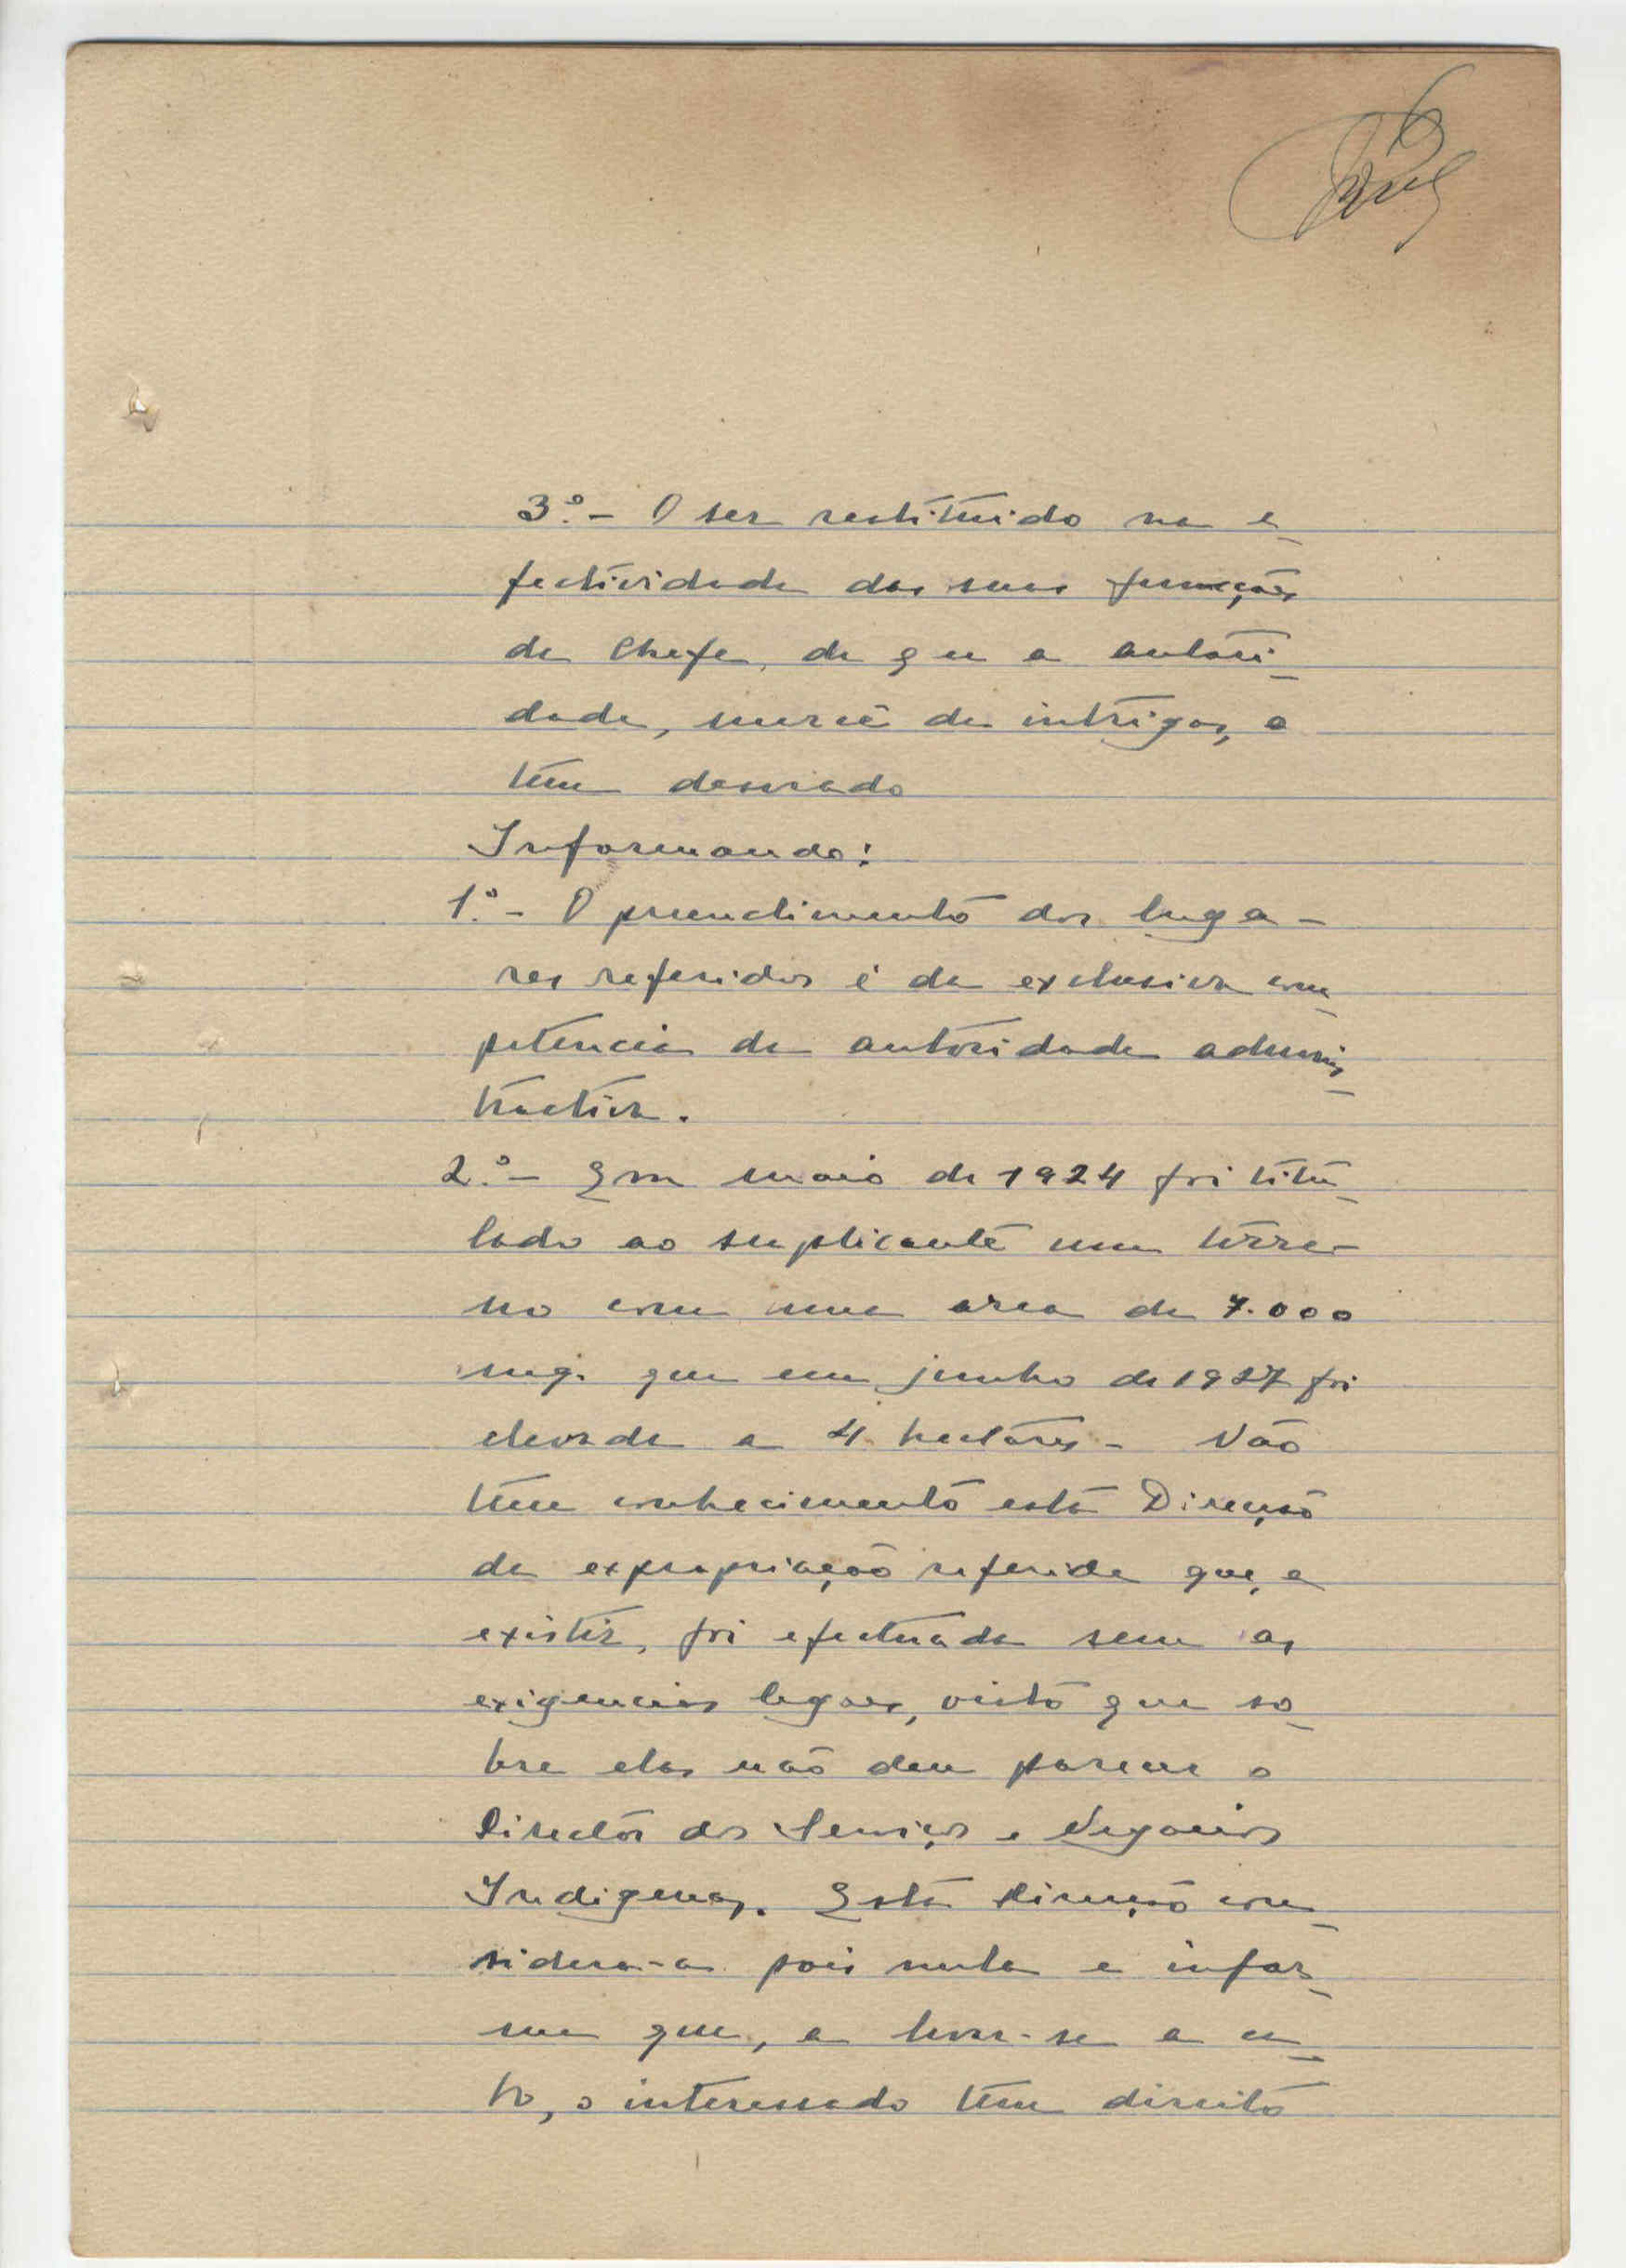 6
3.º - O ser restituido na e-
fectividade das suas funções
de Chefe, de que a autori-
dade, mercê de intrigas, o
tem desviado
Informando:
1.º - O preenchimento dos luga-
res referidos é da exclusiva com-
petencia da autoridade adminis-
tractiva.
2.º - Em maio de 1924 foi titu-
lado ao suplicante um terre-
no com uma area de 7.000
mq. que em junho de 1927 foi
elevada a 4 hectares - Não
tem conhecimento esta Direcção
da expropriação referida que, a
existir, foi efectuada sem as
exigencias legaes, visto que so-
bre elas não deu parecer o
Director dos Serviços e Negocios
Indigenas. Esta Direcção con-
sidera-a pois nula e infor-
ma que, a levar-se a
o interessado tem direito